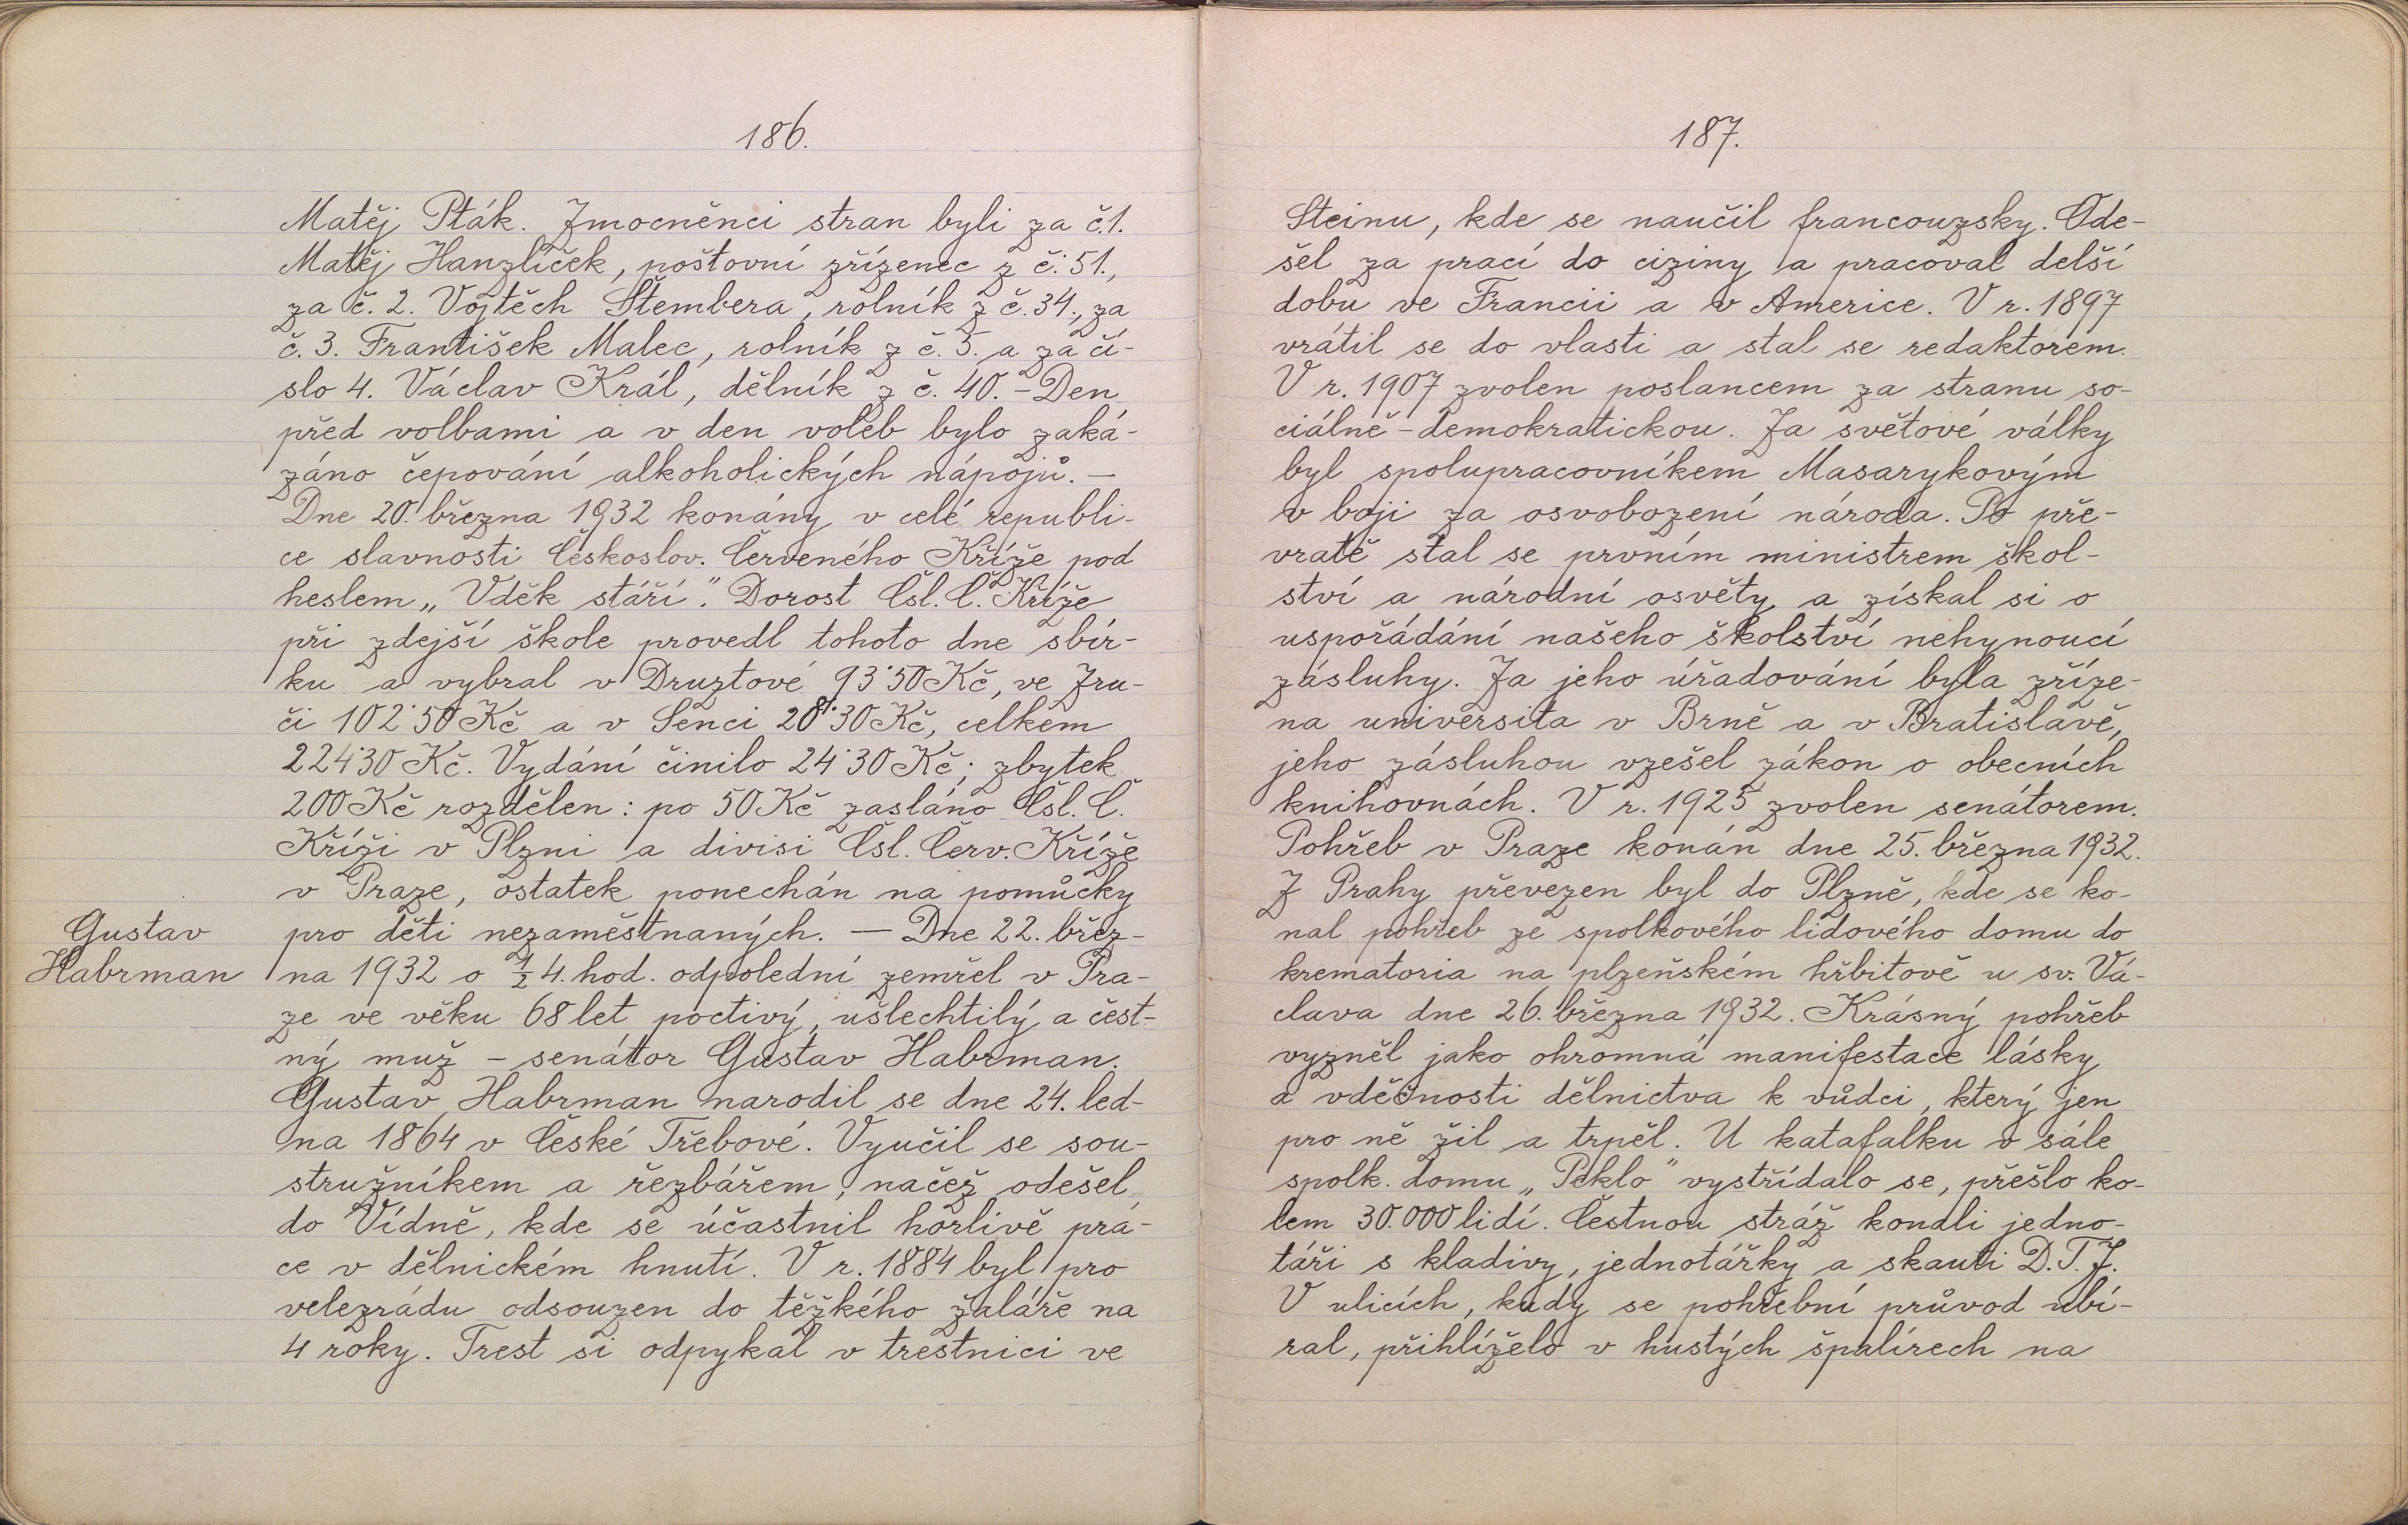 186.
Matěj Pták. Zmocněnci stran byli za č.1.
Matěj Hanzlíček, poštovní zřízenec z č. 51.,
za č. 2. Vojtěch Štembera, rolník z č. 34., za
č. 3. František Malec, rolník z č. 5. a za čí-
slo 4. Václav Král, dělník z č. 40. – Den
před volbami a v den voleb bylo zaká-
záno čepování alkoholických nápojů. –
Dne 20. března 1932 konány v celé republi-
ce slavnosti Českoslov. Červeného Kříže pod
heslem „Vděk stáří". Dorost Čsl. Č. Kříže
při zdejší škole provedl tohoto dne sbír-
ku a vybral v Druztové 93˙50 Kč, ve Zru-
či 102˙50 Kč a v Senci 28˙30 Kč, celkem
224˙30 Kč. Vydání činilo 24˙30 Kč; zbytek
200 Kč rozdělen: po 50 Kč zasláno Čsl. Č.
Kříži v Plzni a divisi Čsl. Červ. Kříže
v Praze, ostatek ponechán na pomůcky
Gustav
Habrman
pro děti nezaměstnaných. – Dne 22. břez-
na 1932 o ½ 4. hod. odpolední zemřel v Pra-
ze ve věku 68 let poctivý, ušlechtilý a čest-
ný muž – senátor Gustav Habrman.
Gustav Habrman narodil se dne 24. led-
na 1864 v České Třebové. Vyučil se sou-
stružníkem a řezbářem, načež odešel
do Vídně, kde se účastnil horlivě prá-
ce v dělnickém hnutí. V r. 1884 byl pro
velezrádu odsouzen do těžkého žaláře na
4 roky. Trest si odpykal v trestnici ve
187.
Steinu, kde se naučil francouzsky. Ode-
šel za prací do ciziny a pracoval delší
dobu ve Francii a v Americe. V r. 1897
vrátil se do vlasti a stal se redaktorem.
V r. 1907 zvolen poslancem za stranu so-
ciálně-demokratickou. Za světové války
byl spolupracovníkem Masarykovým
v boji za osvobození národa. Po pře-
vratě stal se prvním ministrem škol-
ství a národní osvěty a získal si o
uspořádání našeho školství nehynoucí
zásluhy. Za jeho úřadování byla zříze-
na universita v Brně a v Bratislavě,
jeho zásluhou vzešel zákon o obecních
knihovnách. V r. 1925 zvolen senátorem.
Pohřeb v Praze konán dne 25. března 1932.
Z Prahy převezen byl do Plzně, kde se ko-
nal pohřeb ze spolkového lidového domu do
krematoria na plzeňském hřbitově u sv. Vá-
clava dne 26. března 1932. Krásný pohřeb
vyzněl jako ohromná manifestace lásky
a vděčnosti dělnictva k vůdci, který jen
pro ně žil a trpěl. U katafalku v sále
spolk. domu „Peklo" vystřídalo se, přešlo ko-
lem 30.000 lidí. Čestnou stráž konali jedno-
táři s kladivy, jednotářky a skauti D.T.J.
V ulicích, kudy se pohřební průvod ubí-
ral, přihlíželo v hustých špalírech na